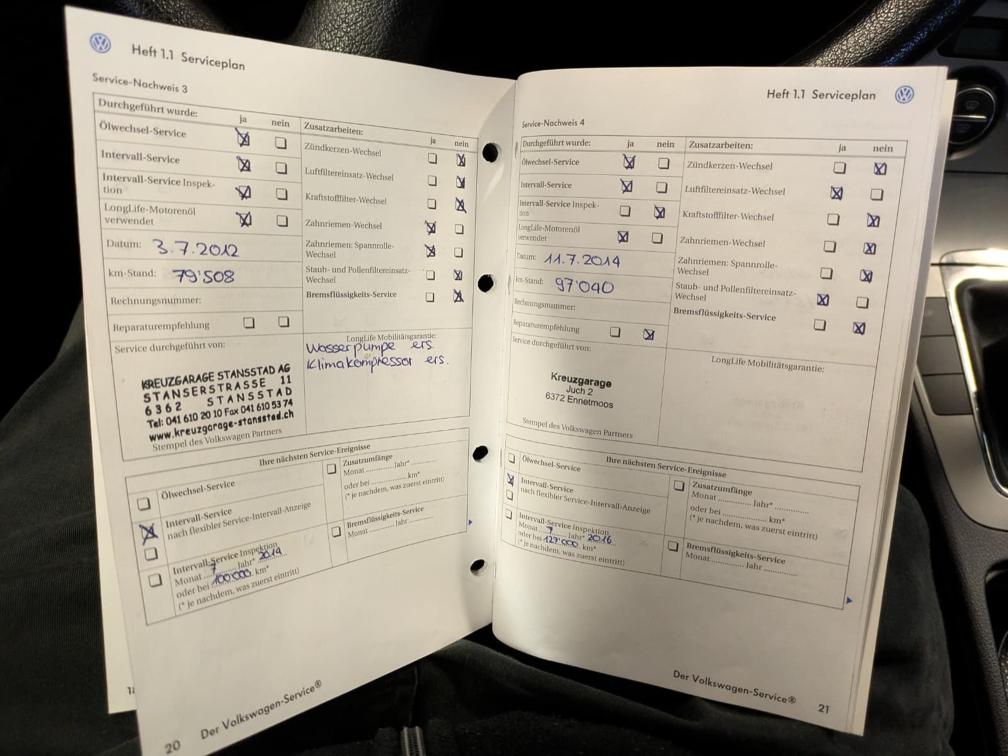 Heft 1.1 Serviceplan
Service-Nachweis 3
Durchgeführt wurde:
ja nein
Ölwechsel-Service
Intervall-Service
Intervall-Service Inspek-
tion
LongLife-Motorenöl
verwendet
Datum: 3.7.2012
km-Stand: 79'508
Rechnungsnummer:
Reparaturempfehlung
Service durchgeführt von:
KREUZGARAGE STANSSTAD AG
STANSERSTRASSE 11
6362 STANSSTAD
Tel: 041 610 20 10 Fax 041 610 53 74
www.kreuzgarage-stansstad.ch
Stempel des Volkswagen Partners
Zusatzarbeiten:
ja nein
Zündkerzen-Wechsel
Luftfiltereinsatz-Wechsel
Kraftstofffilter-Wechsel
Zahnriemen-Wechsel
Zahnriemen: Spannrolle-
Wechsel
Staub- und Pollenfiltereinsatz-
Wechsel
Bremsflüssigkeits-Service
LongLife Mobilitätsgarantie:
Wasserpumpe ers.
Klimakompressor ers.
Ihre nächsten Service-Ereignisse
Ölwechsel-Service
Intervall-Service
nach flexibler Service-Intervall-Anzeige
Intervall-Service Inspektion
Monat 7 Jahr* 2014
oder bei 100'000 km*
(* je nachdem, was zuerst eintritt)
Zusatzumfänge
Monat ............ Jahr* ............
oder bei ............ km*
(* je nachdem, was zuerst eintritt)
Bremsflüssigkeits-Service
Monat ............ Jahr ............
20 Der Volkswagen-Service®
Heft 1.1 Serviceplan
Service-Nachweis 4
Durchgeführt wurde:
ja nein
Ölwechsel-Service
Intervall-Service
Intervall-Service Inspek-
tion
LongLife-Motorenöl
verwendet
Datum: 11.7.2014
km-Stand: 97'040
Rechnungsnummer:
Reparaturempfehlung
Service durchgeführt von:
Kreuzgarage
Juch 2
6372 Ennetmoos
Stempel des Volkswagen Partners
Zusatzarbeiten:
ja nein
Zündkerzen-Wechsel
Luftfiltereinsatz-Wechsel
Kraftstofffilter-Wechsel
Zahnriemen-Wechsel
Zahnriemen: Spannrolle-
Wechsel
Staub- und Pollenfiltereinsatz-
Wechsel
Bremsflüssigkeits-Service
LongLife Mobilitätsgarantie:
Ihre nächsten Service-Ereignisse
Ölwechsel-Service
Intervall-Service
nach flexibler Service-Intervall-Anzeige
Intervall-Service Inspektion
Monat 7 Jahr* 2016
oder bei 127'000 km*
(* je nachdem, was zuerst eintritt)
Zusatzumfänge
Monat ............ Jahr* ............
oder bei ............ km*
(* je nachdem, was zuerst eintritt)
Bremsflüssigkeits-Service
Monat ............ Jahr ............
Der Volkswagen-Service® 21